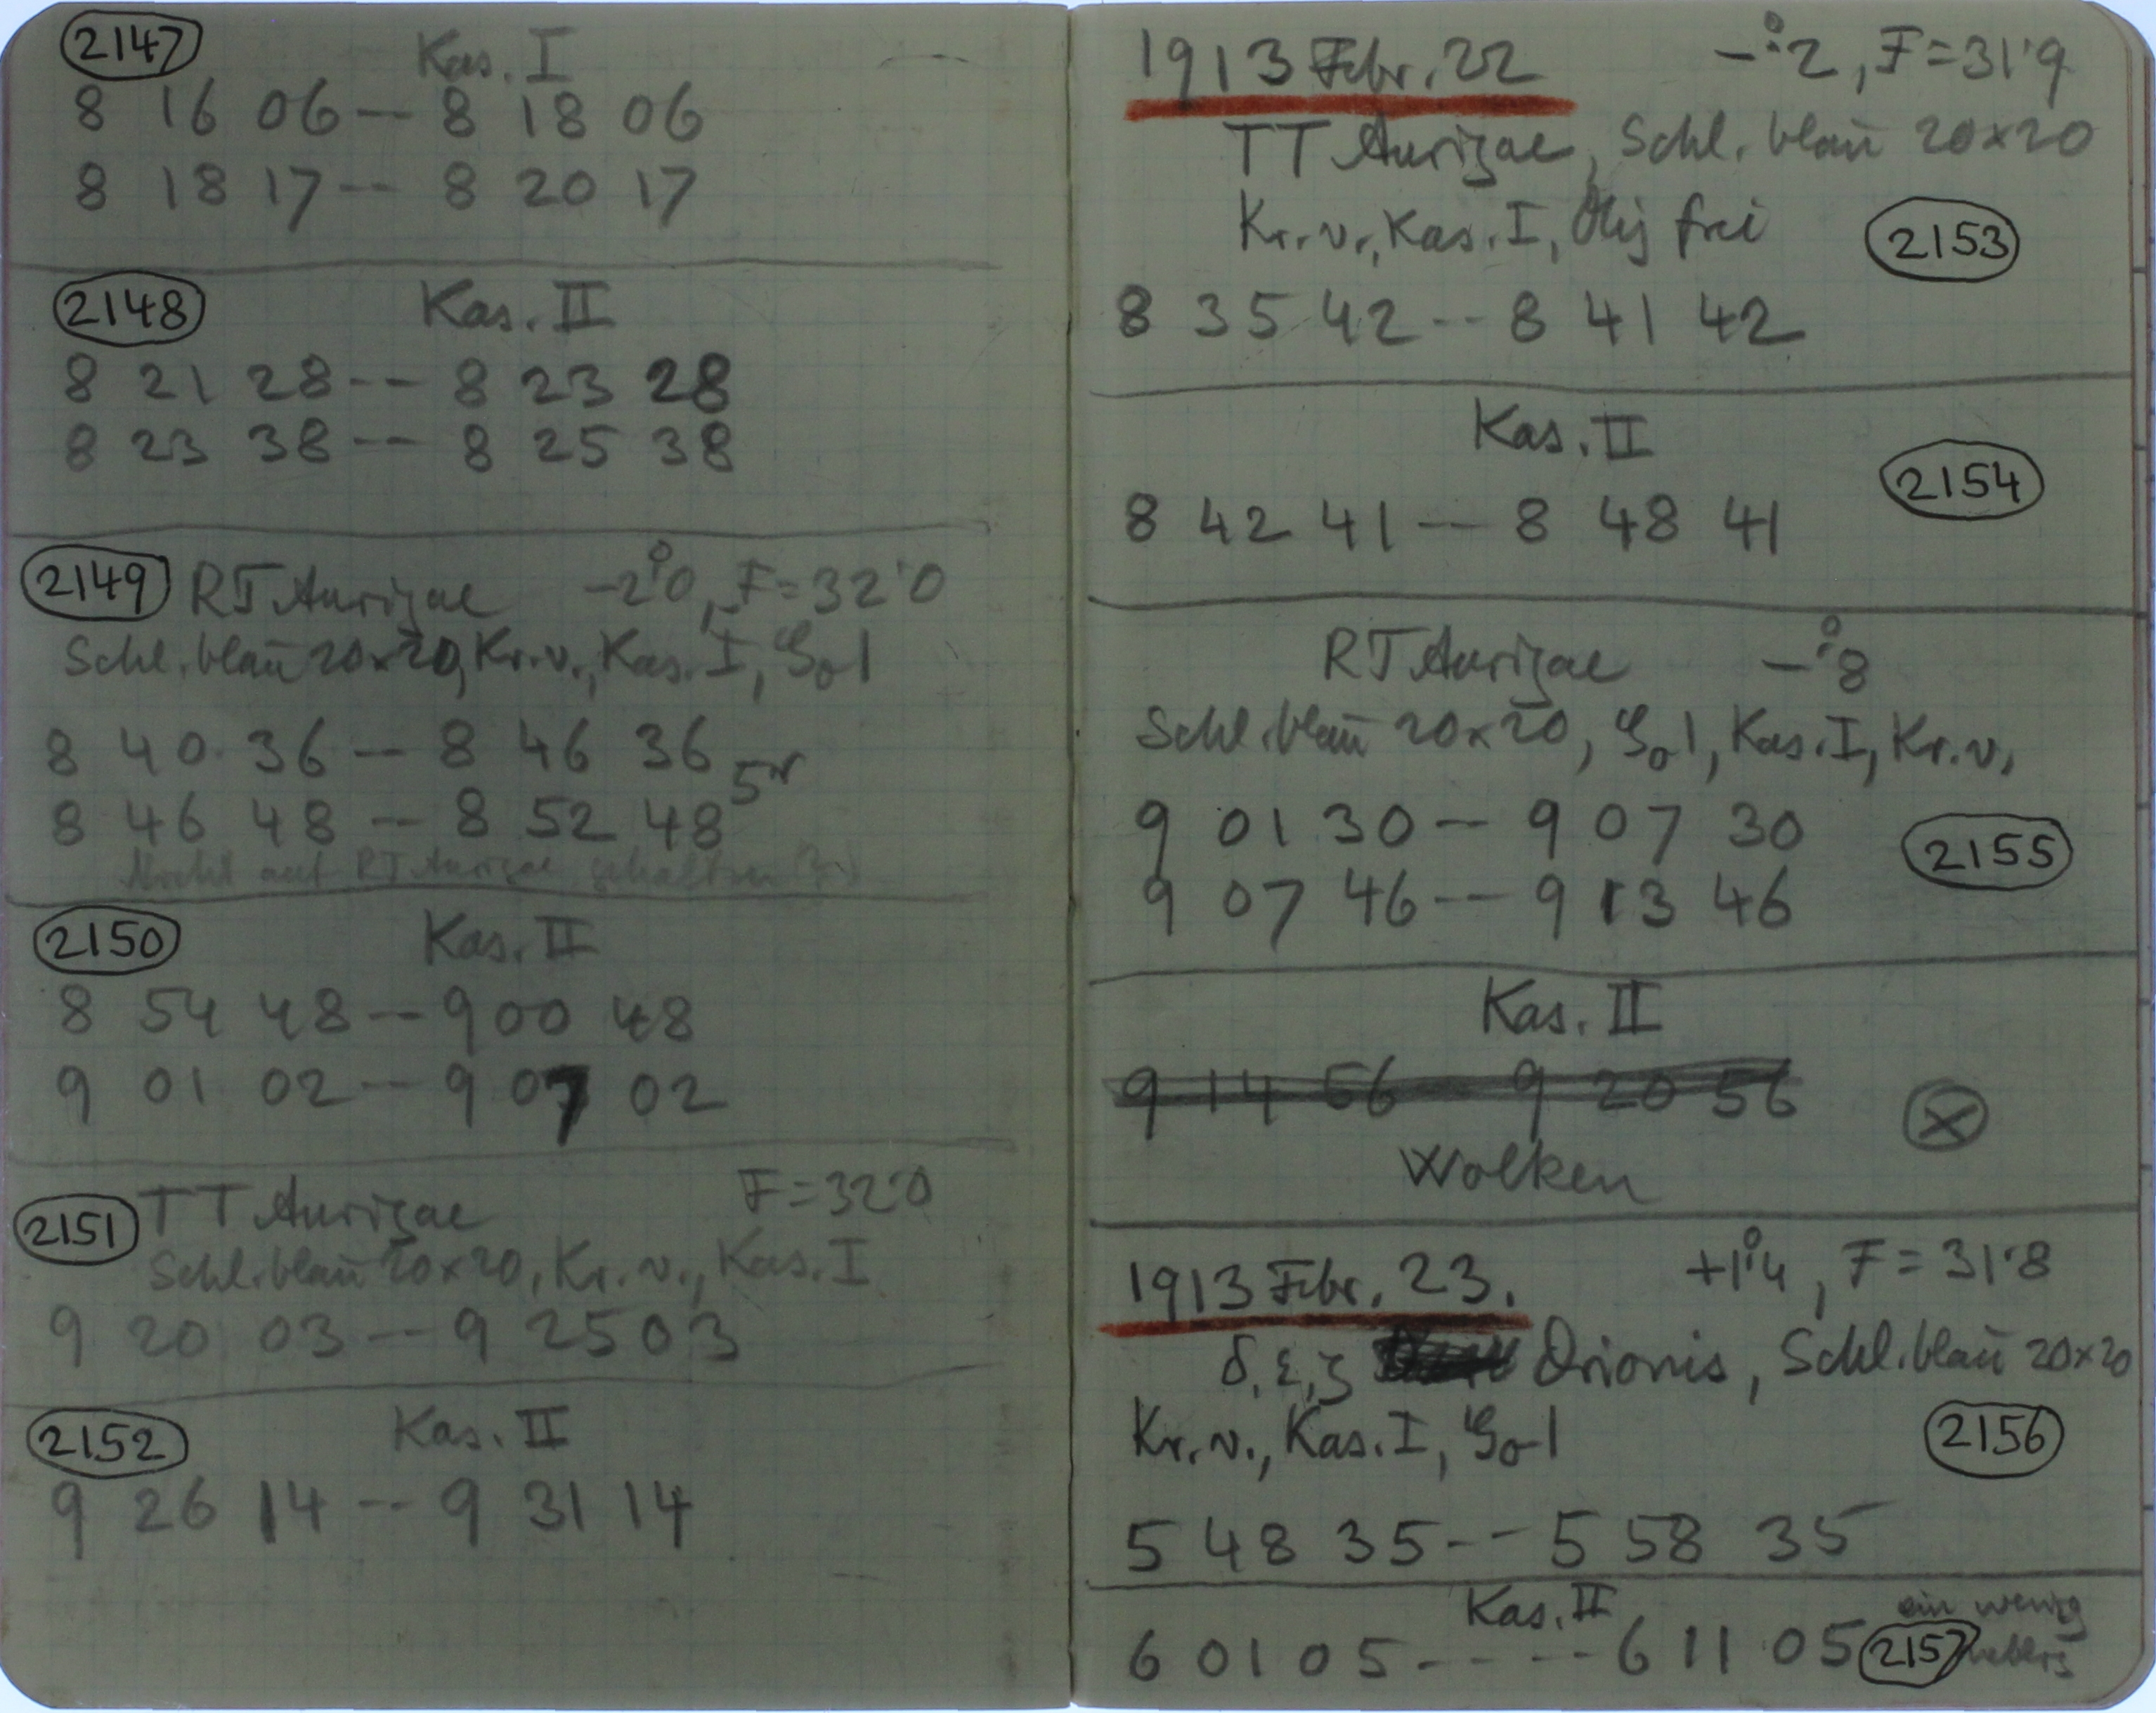 2147 Kas. I
8 16 06 -- 8 18 06
8 18 17 -- 8 20 17
2148 Kas. II
8 21 28 -- 8 23 28
8 23 38 -- 8 25 38
2149 RT Aurigae -2°0, F=32'0
Schl. blau 20×20, Kr. v., Kas. I,
8 40 36 -- 8 46 36
8 46 48 -- 8 52 48
Nicht auf RT Aurigae gehalten
2150 Kas. II
8 54 48 -- 9 00 48
9 01 02 -- 9 07 02
2151 TT Aurigae F=32'0
Schl. blau 20×20, Kr. v., Kas. I
9 20 03 -- 9 25 03
2152 Kas. II
9 26 14 -- 9 31 14
1913 Febr. 22 -°.2, F=31'9
TT Aurigae, Schl. blau 20×20
Kr. v., Kas. I, Obj frei 2153
8 35 42 -- 8 41 42
Kas. II
8 42 41 -- 8 48 41 2154
RT Aurigae -°.8
Schl. blau 20×20, Kas. I, Kr. v.,
9 01 30 -- 9 07 30
9 07 46 -- 9 13 46 2155
Kas. II
9 14 56 9 20 56
Wolken
1913 Febr. 23. +1°4, F=31'8
δ, ε, ζ Orionis, Schl. blau 20×20
Kr. v., Kas. I, 2156
5 48 35 -- 5 58 35
Kas. II ein wenig
6 01 05 ---- 6 11 05 2157